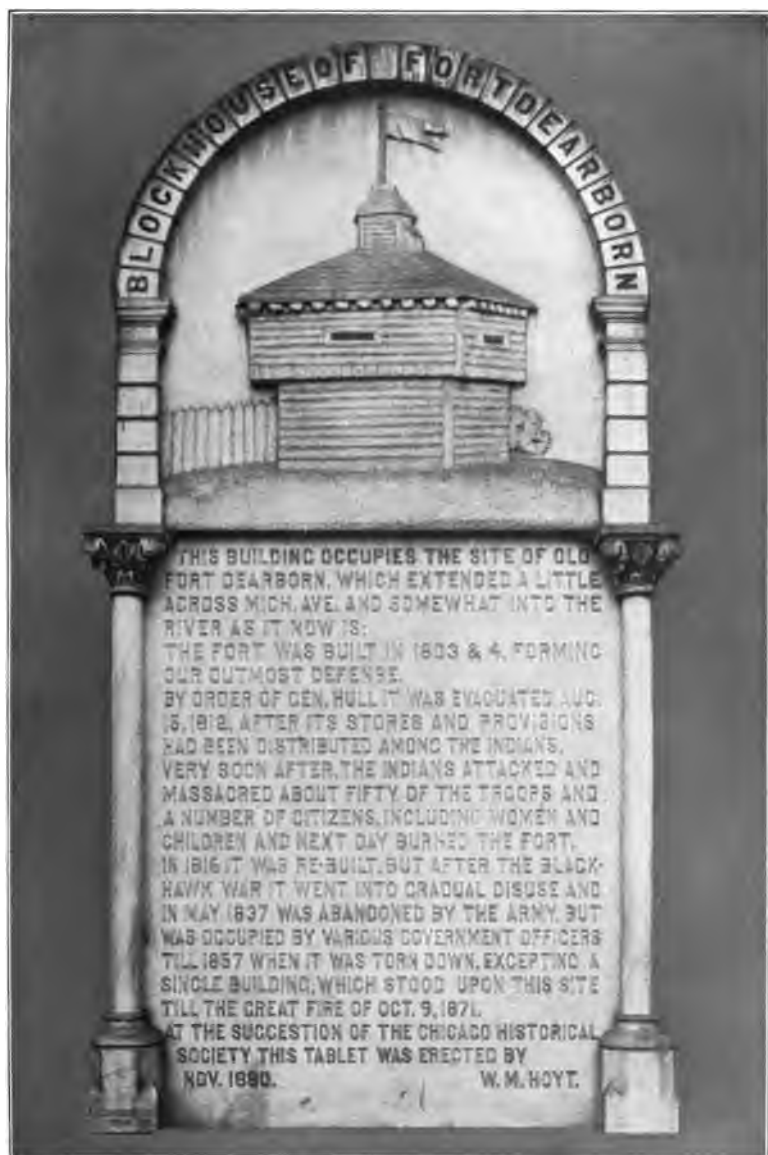 BLOCKHOUSE OF FORT DEARBORN
THIS BUILDING OCCUPIES THE SITE OF OLD
FORT DEARBORN, WHICH EXTENDED A LITTLE
ACROSS MICH. AVE. AND SOMEWHAT INTO THE
RIVER AS IT NOW IS:
THE FORT WAS BUILT IN 1803 & 4, FORMING
OUR OUTMOST DEFENSE.
BY ORDER OF GEN. HULL IT WAS EVACUATED AUG.
15, 1812, AFTER ITS STORES AND PROVISIONS
HAD BEEN DISTRIBUTED AMONG THE INDIANS.
VERY SOON AFTER, THE INDIANS ATTACKED AND
MASSACRED ABOUT FIFTY OF THE TROOPS AND
A NUMBER OF CITIZENS, INCLUDING WOMEN AND
CHILDREN AND NEXT DAY BURNED THE FORT.
IN 1816 IT WAS RE-BUILT, BUT AFTER THE BLACK-
HAWK WAR IT WENT INTO GRADUAL DISUSE AND
IN MAY 1837 WAS ABANDONED BY THE ARMY, BUT
WAS OCCUPIED BY VARIOUS GOVERNMENT OFFICERS
TILL 1857 WHEN IT WAS TORN DOWN, EXCEPTING A
SINGLE BUILDING, WHICH STOOD UPON THIS SITE
TILL THE GREAT FIRE OF OCT. 9, 1871.
AT THE SUGGESTION OF THE CHICAGO HISTORICAL
SOCIETY THIS TABLET WAS ERECTED BY
NOV. 1880. W. M. HOYT.